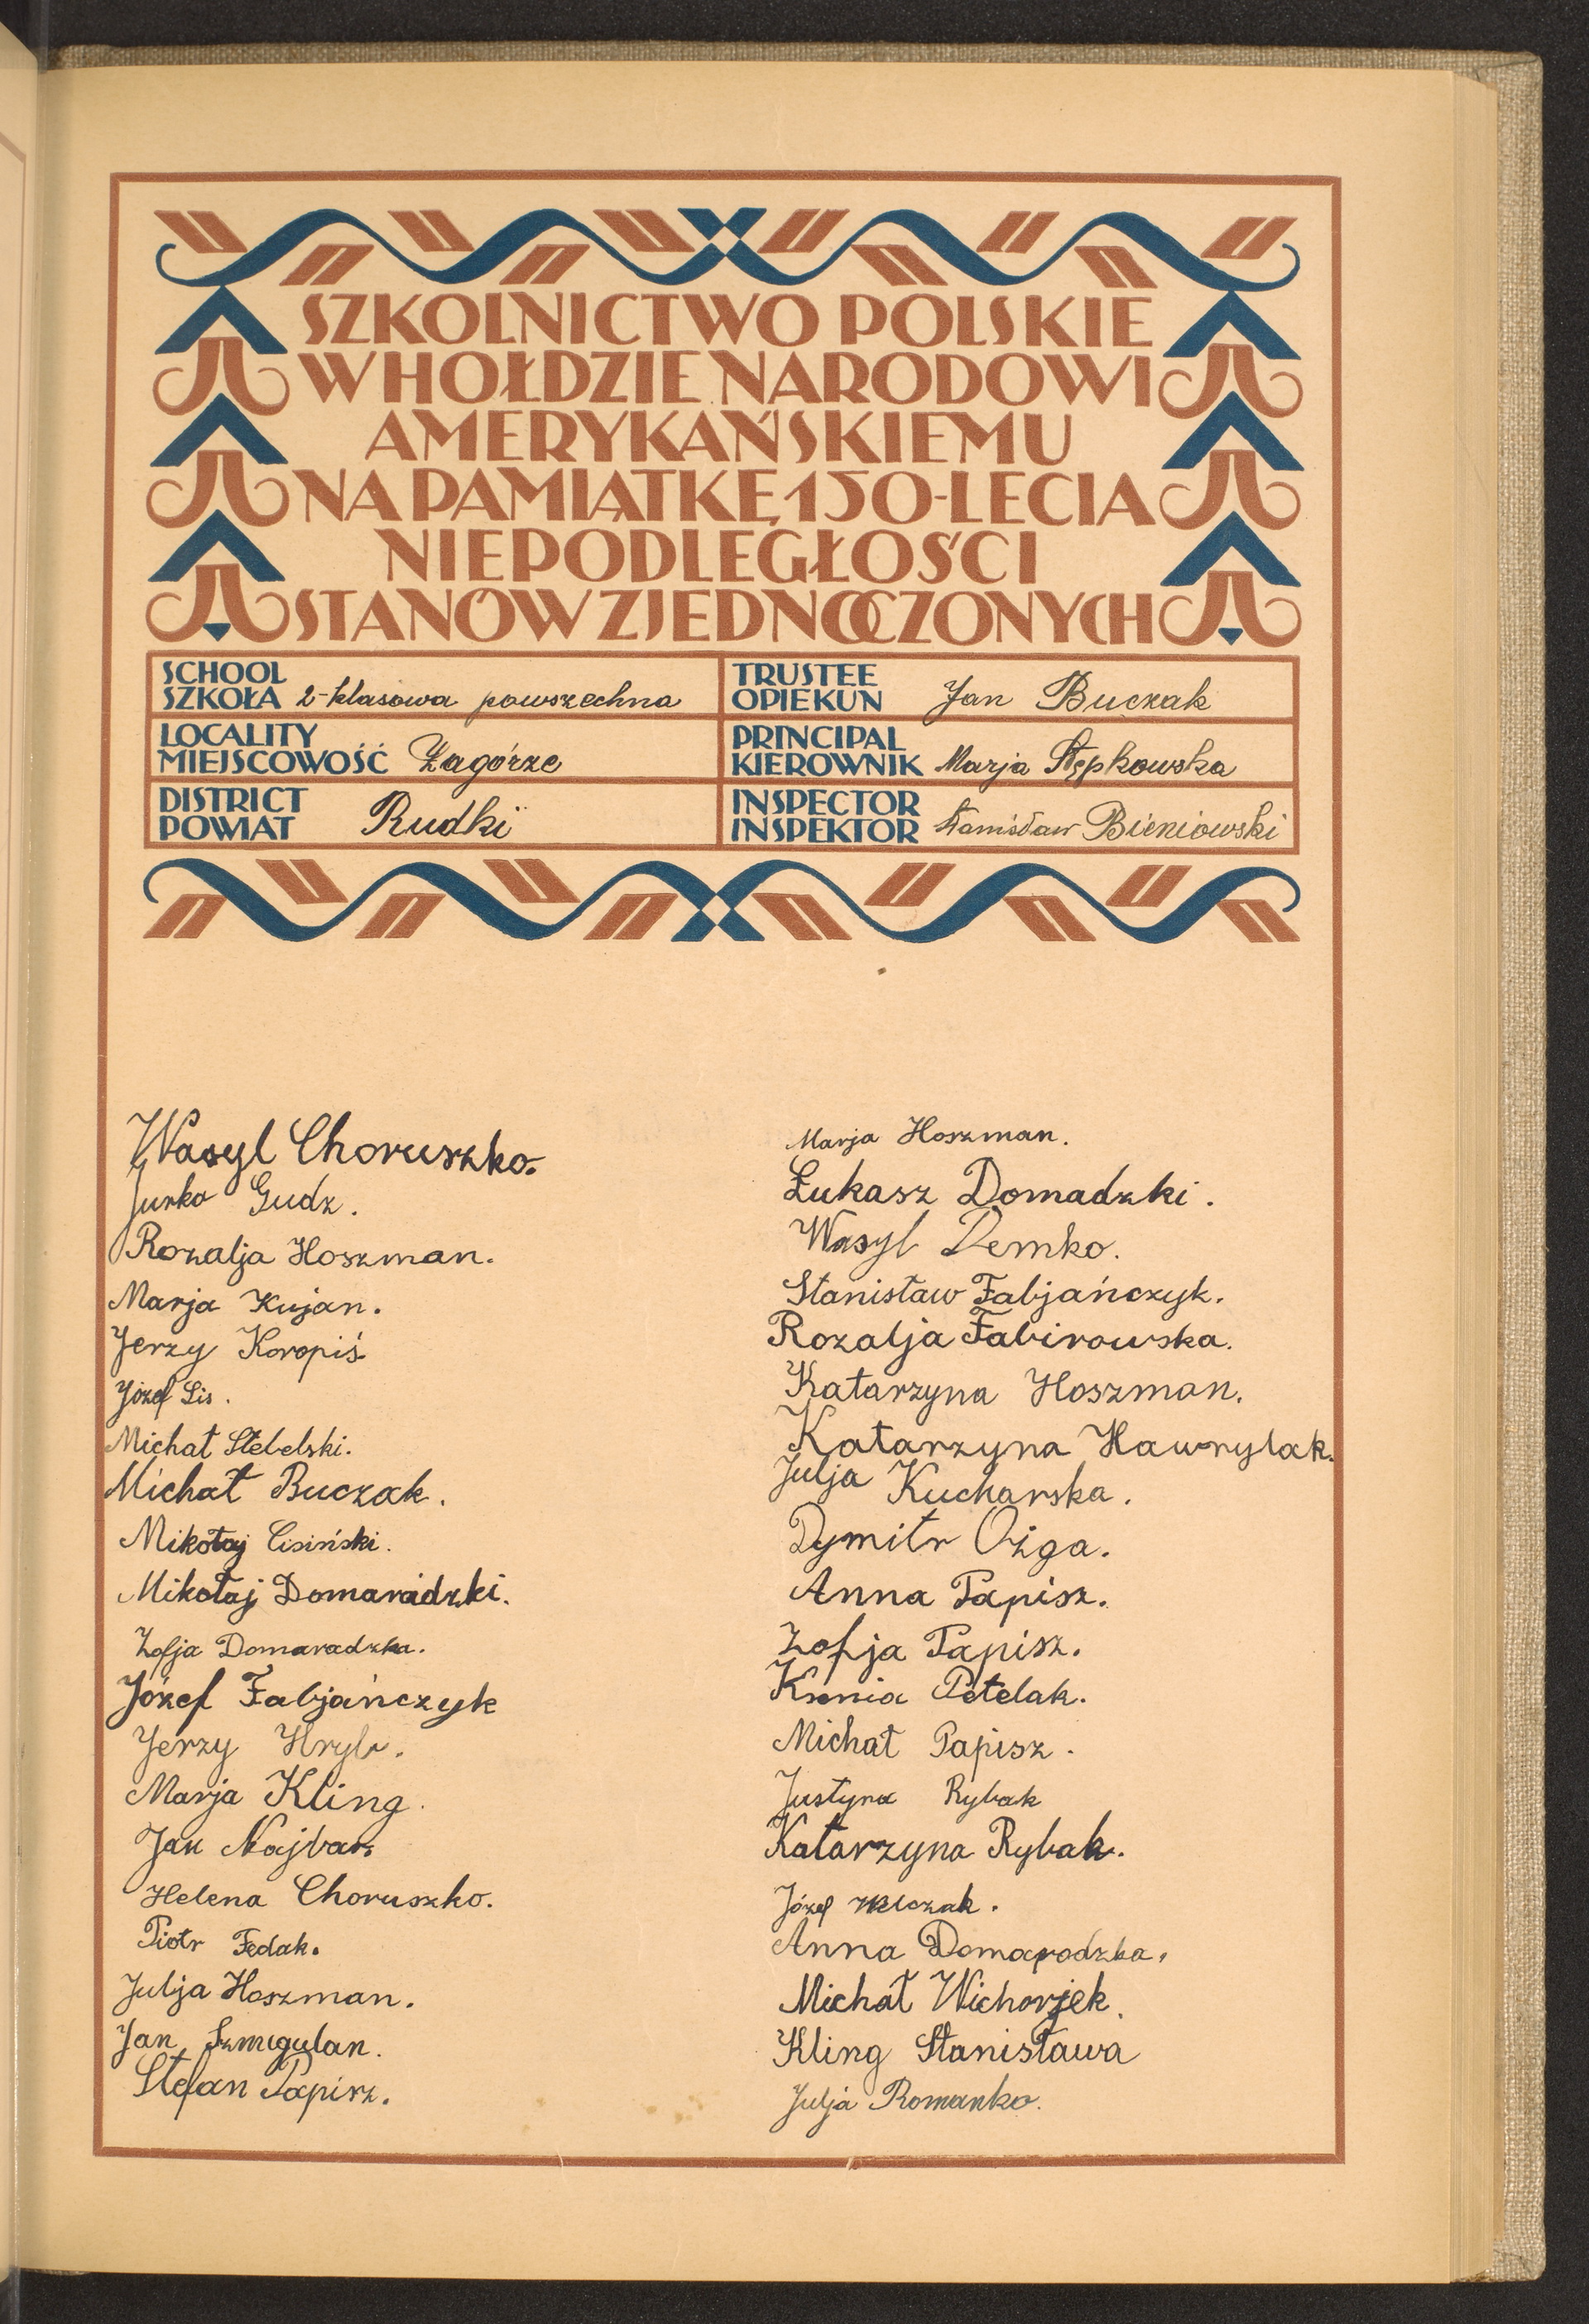 SZKOLNICTWO POLSKIE
W HOŁDZIE NARODOWI
AMERYKAŃSKIEMU
NA PAMIĄTKĘ 150-LECIA
NIEPODLEGŁOŚCI
STANÓW ZJEDNOCZONYCH
SCHOOL
SZKOŁA 2-klasowa powszechna
TRUSTEE
OPIEKUN Jan Buczak
LOCALITY
MIEJSCOWOŚĆ Zagórze
PRINCIPAL
KIEROWNIK Marja Stępkowska
DISTRICT
POWIAT Rudki
INSPECTOR
INSPEKTOR Stanisław Bieniowski
Wasyl Choruszko.
Jurko Gudz.
Rozalja Hoszman.
Marja Kujan.
Jerzy Koropiś
Józef Lis.
Michał Stebelski.
Michał Buczak.
Mikołaj Cisiński.
Mikołaj Domaradzki.
Zofja Domaradzka.
Józef Fabjańczyk
Jerzy Hryb.
Marja Kling.
Jan Najbar.
Helena Choruszko.
Piotr Fedak.
Julja Hoszman.
Jan Szmigulan.
Stefan Papisz.
Marja Hoszman.
Łukasz Domadzki.
Wasyl Demko.
Stanisław Fabjańczyk.
Rozalja Fabirowska.
Katarzyna Hoszman.
Katarzyna Hawrylak.
Julja Kucharska.
Dymitr Ożga.
Anna Papisz.
Zofja Papisz.
Ksenia Petelak.
Michał Papisz.
Justyna Rybak
Katarzyna Rybak.
Józef
Anna Domarodzka.
Michał Wichorjek.
Kling Stanisława
Julja Romanko.